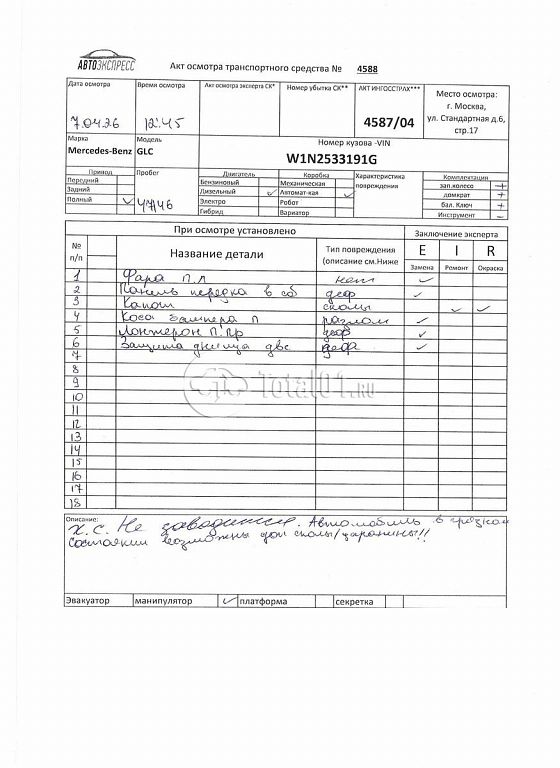 АВТОЭКСПРЕСС
Акт осмотра транспортного средства № 4588
Дата осмотра
Время осмотра
Акт осмотра эксперта СК*
Номер убытка СК**
АКТ ИНГОССТРАХ***
Место осмотра:
г. Москва,
ул. Стандартная д.6,
стр.17
7.04.26
12:45
4587/04
Марка
Модель
Номер кузова -VIN
Mercedes-Benz
GLC
W1N2533191G
Привод
Пробег
Двигатель
Коробка
Характеристика
повреждения
Комплектация
Передний
Бензиновый
Механическая
зап.колесо +
Задний
Дизельный ✓
Автомат-кая ✓
домкрат +
Полный ✓
47746
Электро
Робот
бал. Ключ +
Гибрид
Вариатор
Инструмент -
При осмотре установлено
Заключение эксперта
№
п/п
Название детали
Тип повреждения
(описание см.Ниже
E I R
Замена Ремонт Окраска
1 Фара п.л нет ✓
2 Панель передка в сб деф ✓
3 Капот сколы ✓ ✓
4 Коса бампера п разлом ✓
5 Лонжерон п.пр деф ✓
6 Защита днища двс деф ✓
7
8
9
10
11
12
13
14
15
16
17
18
Total01.RU
Описание:
Х.С. Не заводится. Автомобиль в грязном
состоянии возможны доп сколы/царапины!!
Эвакуатор манипулятор ✓ платформа секретка